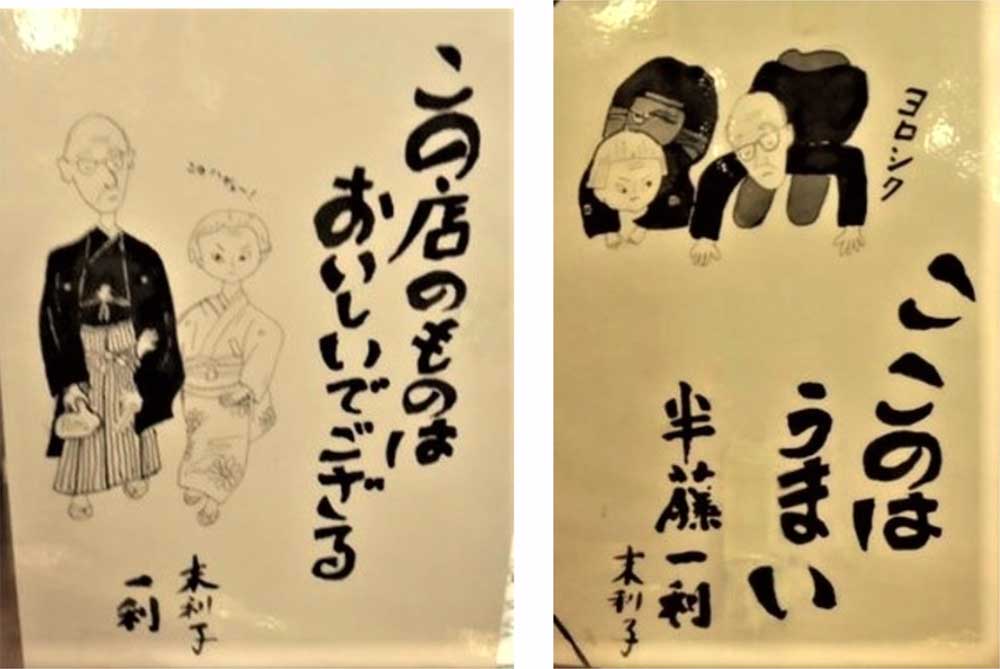 この店のものは
おいしいでござる
末利子
一利
ヨロシク
ここのは
うまい
半藤一利
末利子